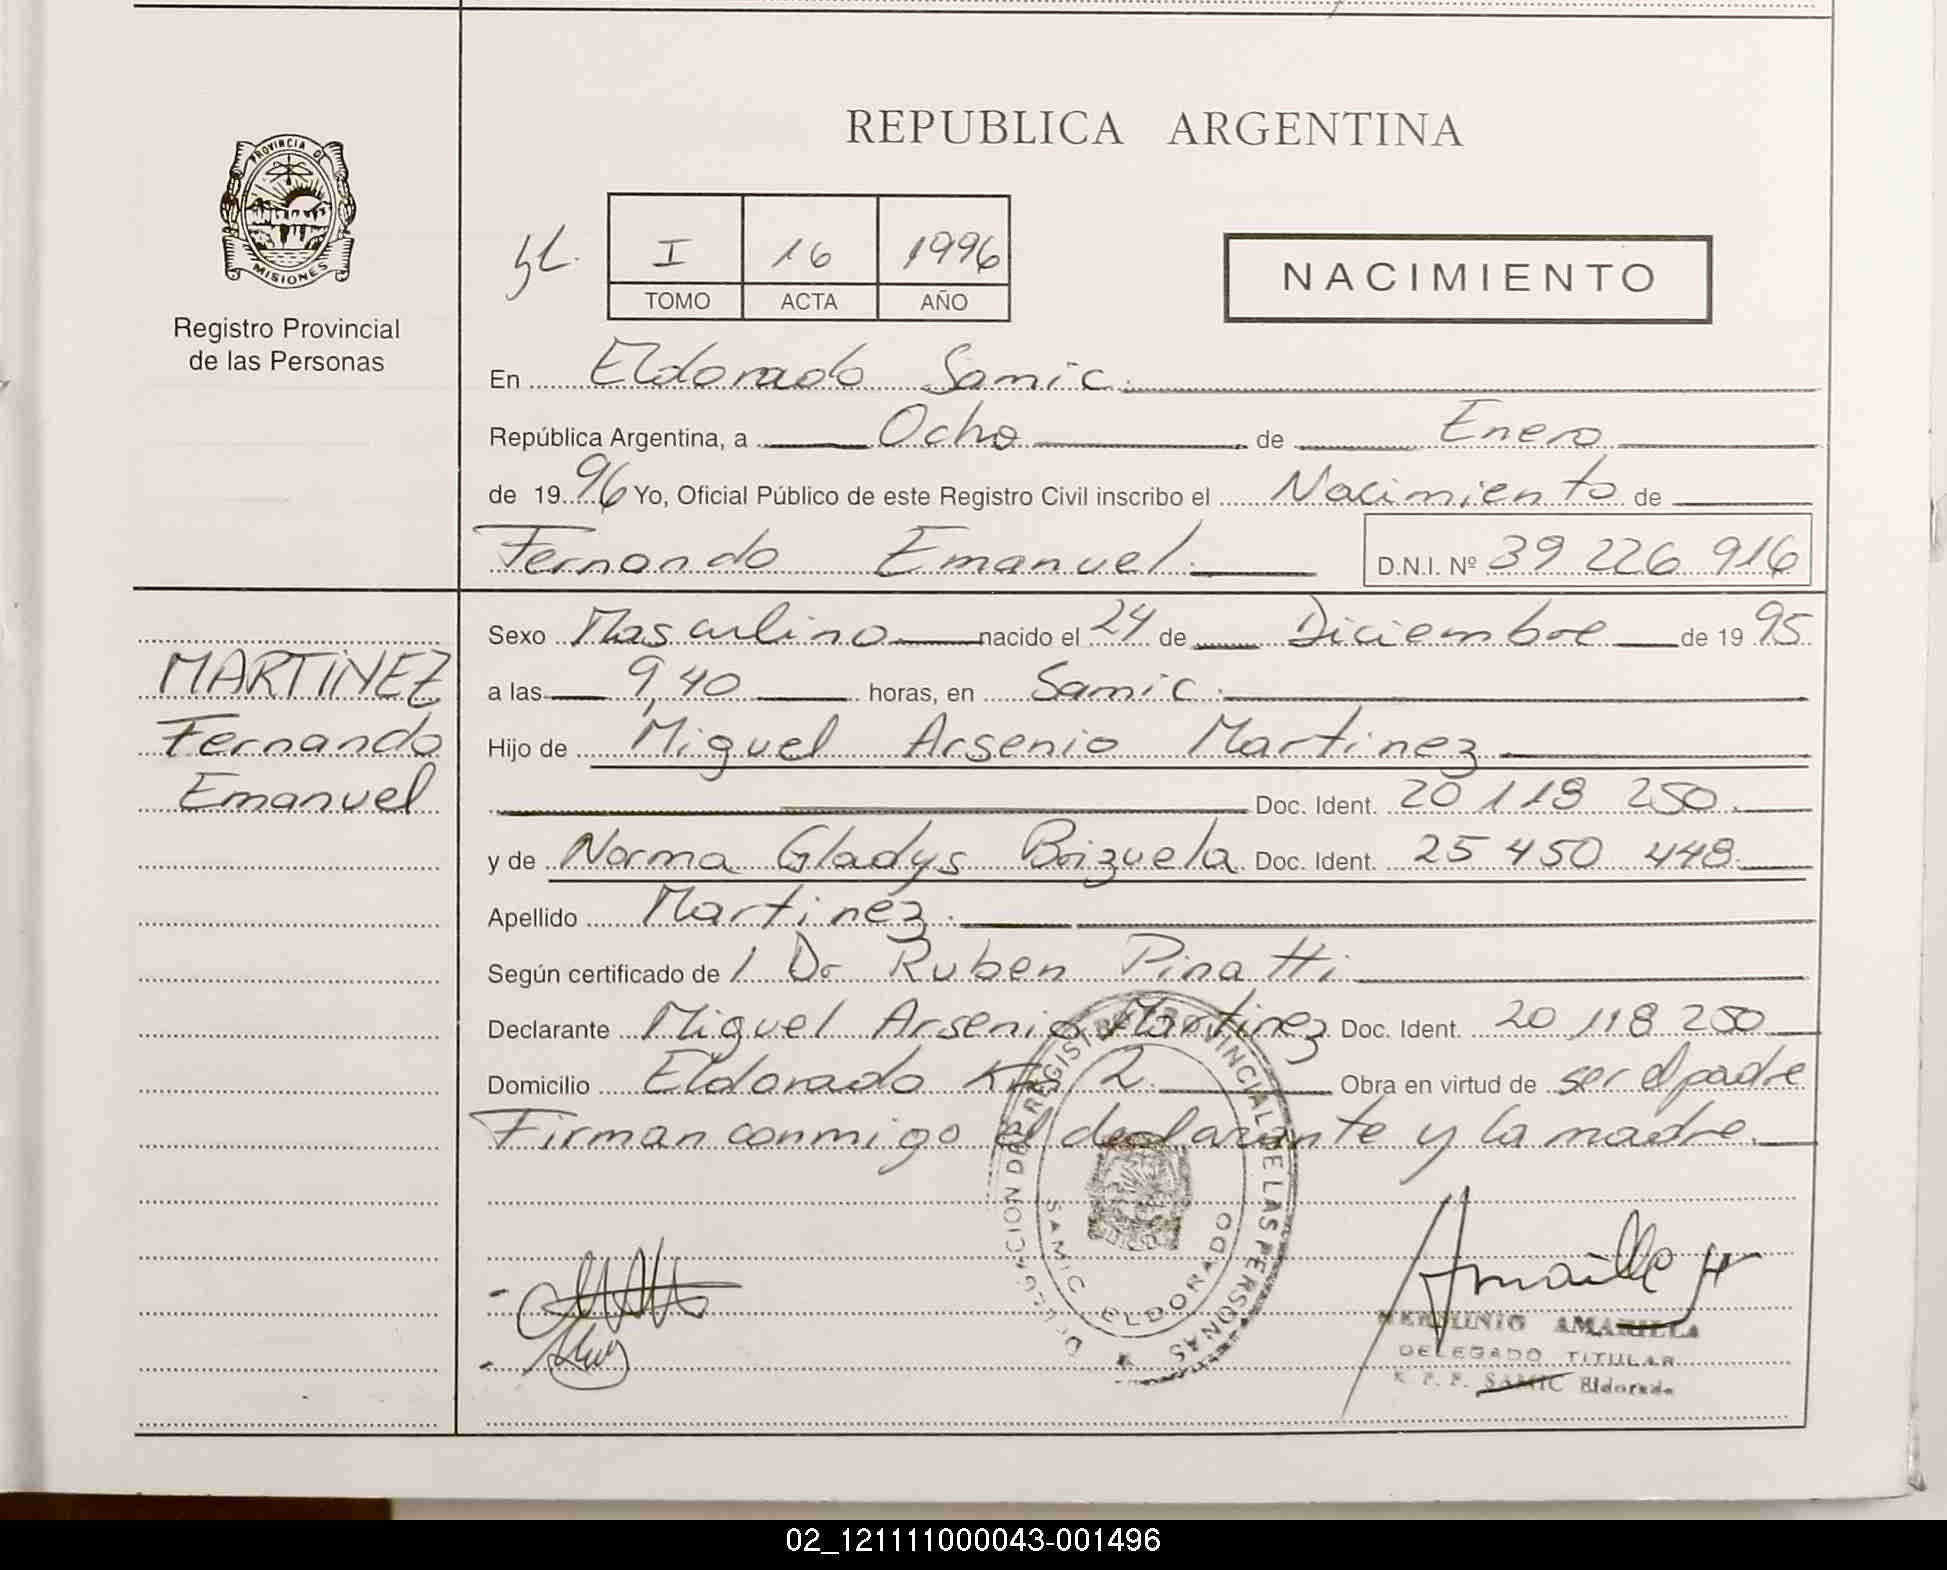 REPUBLICA ARGENTINA
PROVINCIA DE
MISIONES
Registro Provincial
de las Personas
I 16 1996
TOMO ACTA AÑO
NACIMIENTO
En Eldorado Samic.
República Argentina, a Ocho de Enero
de 1996 Yo, Oficial Público de este Registro Civil inscribo el Nacimiento de
Fernando Emanuel. D.N.I. Nº 39 226 916
MARTINEZ
Fernando
Emanuel
Sexo Masculino nacido el 24 de Diciembre de 1995.
a las 9,40 horas, en Samic.
Hijo de Miguel Arsenio Martinez
Doc. Ident. 20 118 250.
y de Norma Gladys Brizuela Doc. Ident. 25 450 448.
Apellido Martinez.
Según certificado de / Dr Ruben Pinatti
Declarante Miguel Arsenio Martinez Doc. Ident. 20 118 250
Domicilio Eldorado Km 2. Obra en virtud de ser el padre
Firman conmigo el declarante y la madre.
DELEGACION DEL REGISTRO PROVINCIAL DE LAS PERSONAS
SAMIC ELDORADO
HERMINIO AMARILLA
DELEGADO TITULAR
R. P. P. SAMIC Eldorado
02_121111000043-001496